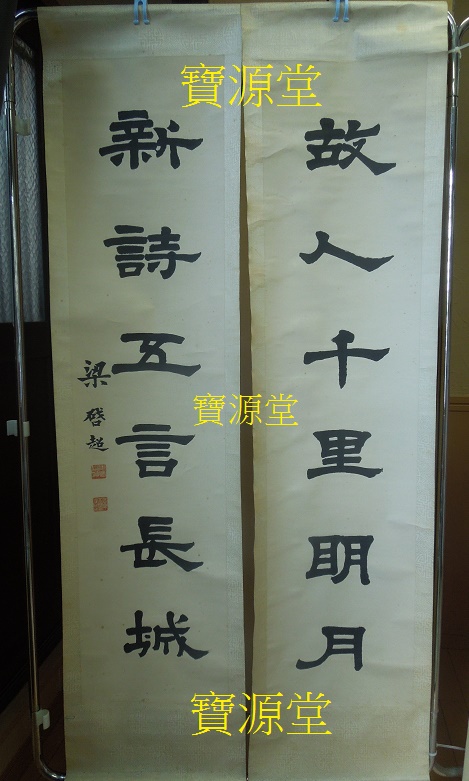 寶源堂
故人千里明月
新詩五言長城
梁啓超
寶源堂
寶源堂